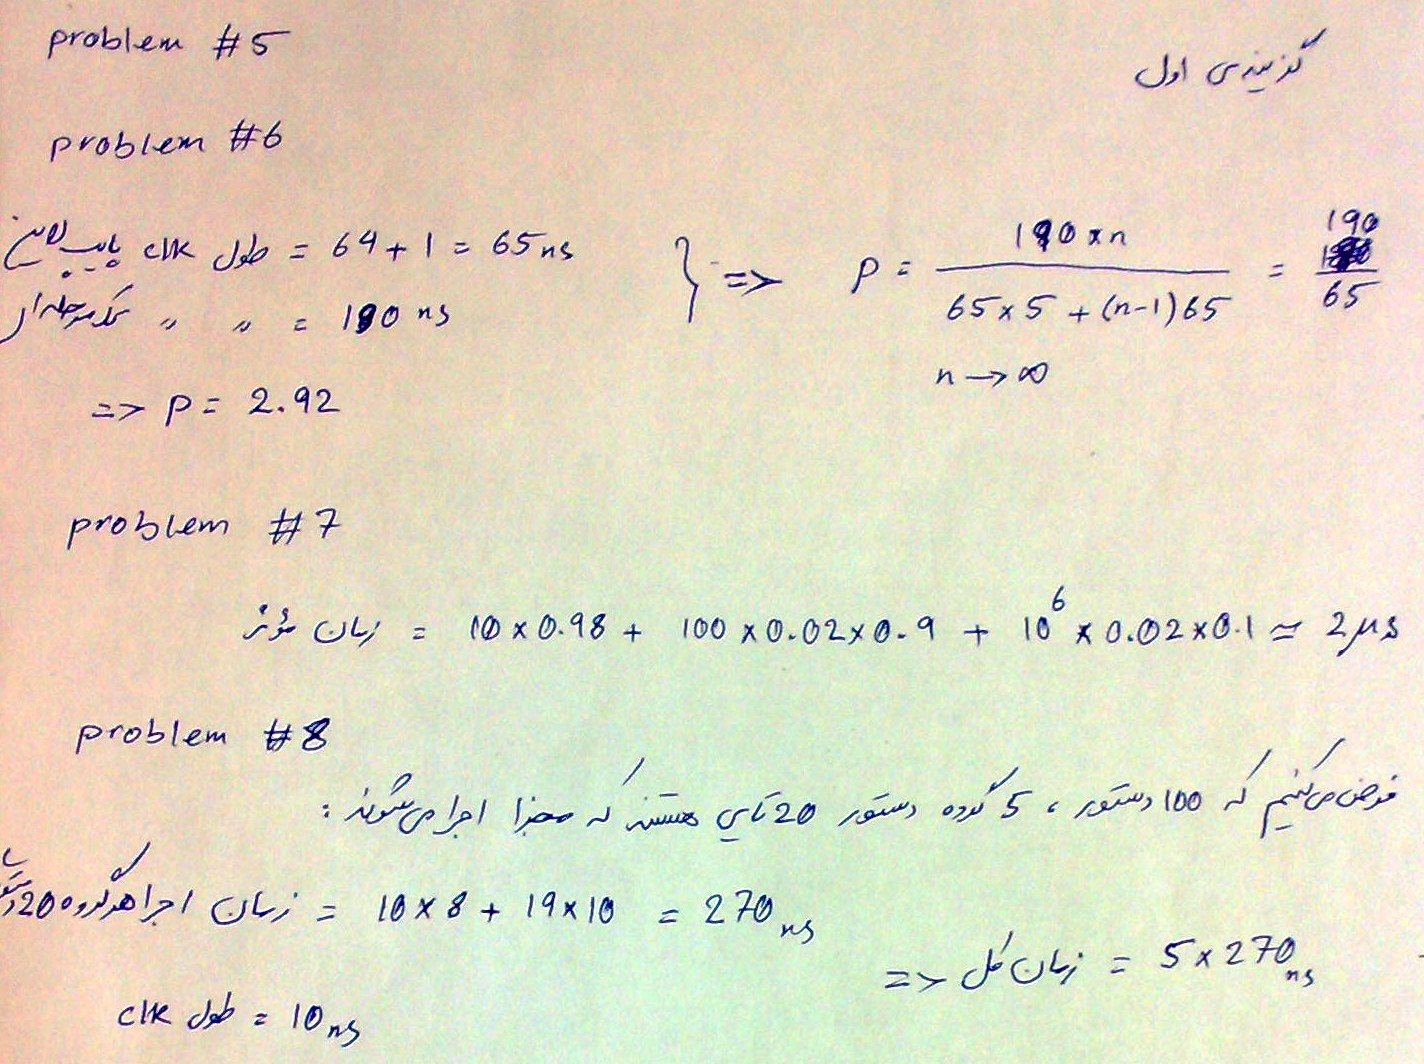 problem #5
گزینه‌ی اول
problem #6
طول clk پایپ‌لاین = 64 + 1 = 65 ns
تک مرحله‌ای " " = 190 ns
} => P = 190 × n / 65 × 5 + (n-1) 65 = 190 / 65
n → ∞
=> P = 2.92
problem #7
زمان مؤثر = 10 × 0.98 + 100 × 0.02 × 0.9 + 10^6 × 0.02 × 0.1 ≃ 2 μs
problem #8
فرض می‌کنیم که 100 دستور ، 5 گروه دستور 20 تایی هستند که مجزا اجرا می‌شوند :
زمان اجرا هر گروه 20 = 10 × 8 + 19 × 10 = 270 ns
=> زمان کل = 5 × 270 ns
طول clk = 10 ns